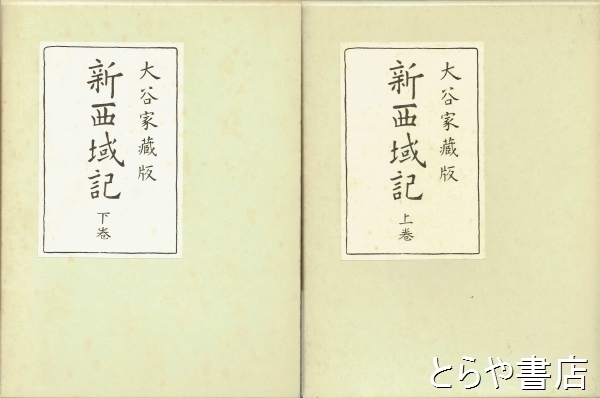 大谷家蔵版
新西域記
上巻
大谷家蔵版
新西域記
下巻
とらや書店